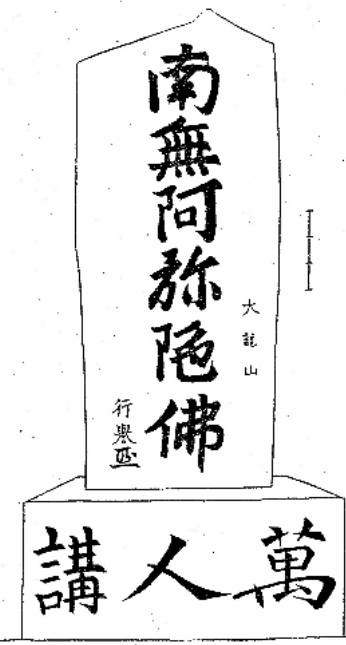 南無阿弥陁佛
大龍山
行誉
萬人講